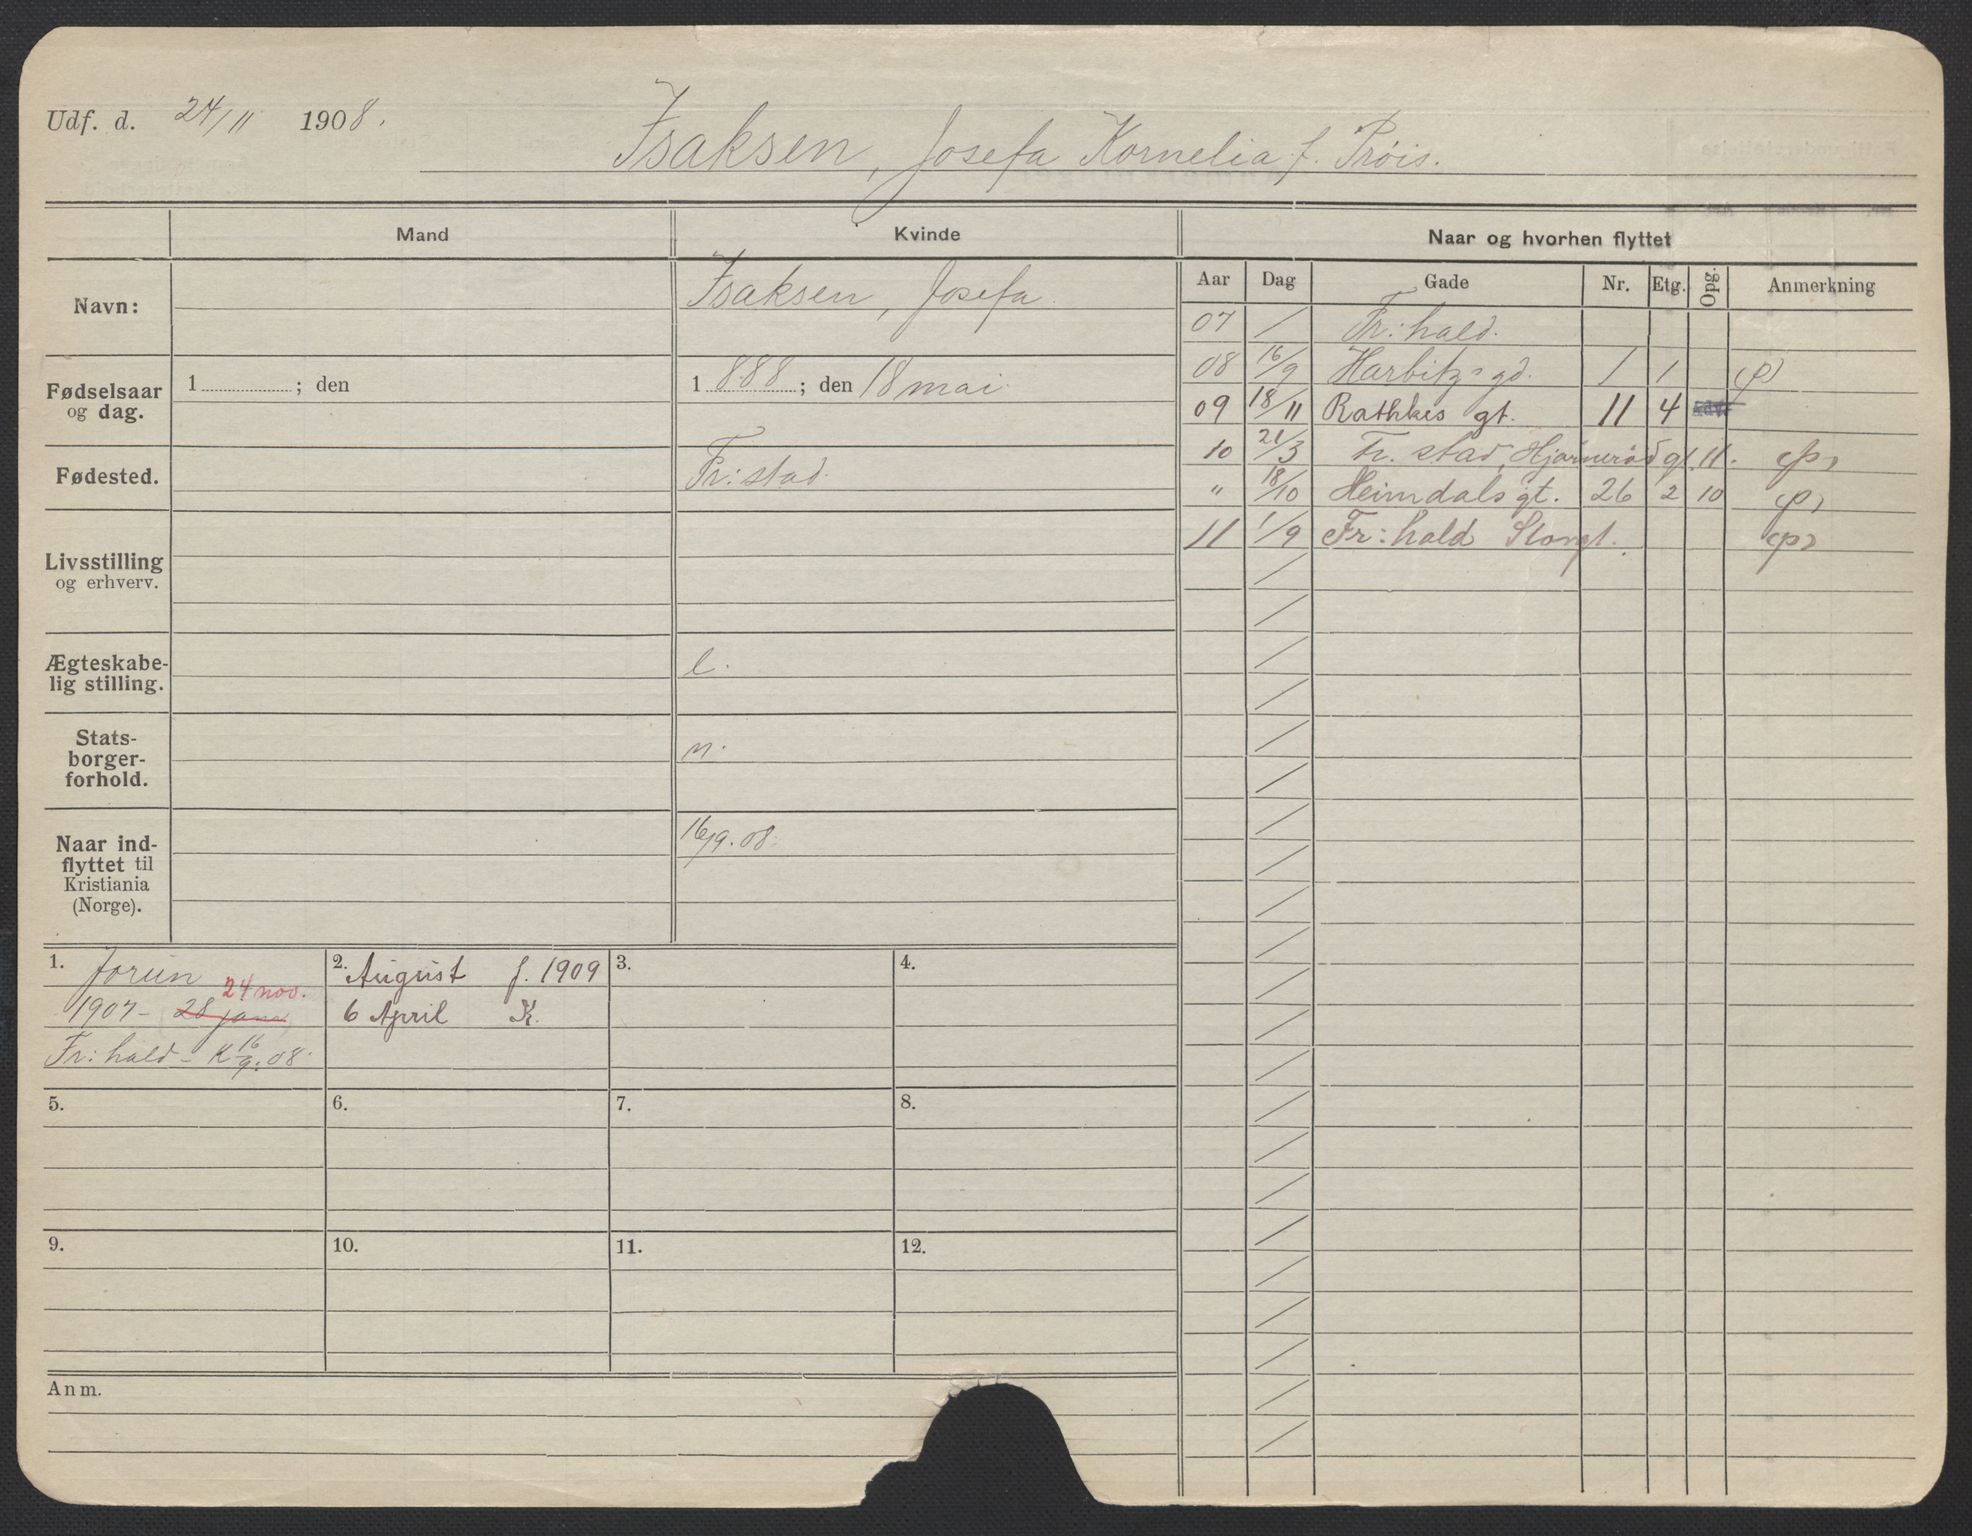 Udf. d. 24/11 1908.
Isaksen, Josefa Kornelia f. Prøis.
Mand
Kvinde
Naar og hvorhen flyttet
Navn:
Isaksen, Josefa.
Fødselsaar og dag.
1 ; den
1 888 ; den 18 mai
Fødested.
Fr: stad.
Livsstilling og erhverv.
Ægteskabe-
lig stilling.
e.
Stats-
borger-
forhold.
n.
Naar ind-
flyttet til
Kristiania
(Norge).
16/9. 08.
Aar Dag Gade Nr. Etg. Opg. Anmerkning
07 / Fr: hald.
08 16/9 Harbitz gd. 1 1 (p)
09 18/11 Rathkes gt. 11 4
10 21/3 Fr. stad, gt. 11. (p)
" 18/10 Heimdals gt. 26 2 10 (p)
11 1/9 Fr: hald Storgt. (p)
1. Jorun
24 nov.
1907 - 28 jan
Fr: hald - K 16/9. 08.
2. August f. 1909
6 April K.
3.
4.
5.
6.
7.
8.
9.
10.
11.
12.
Anm.